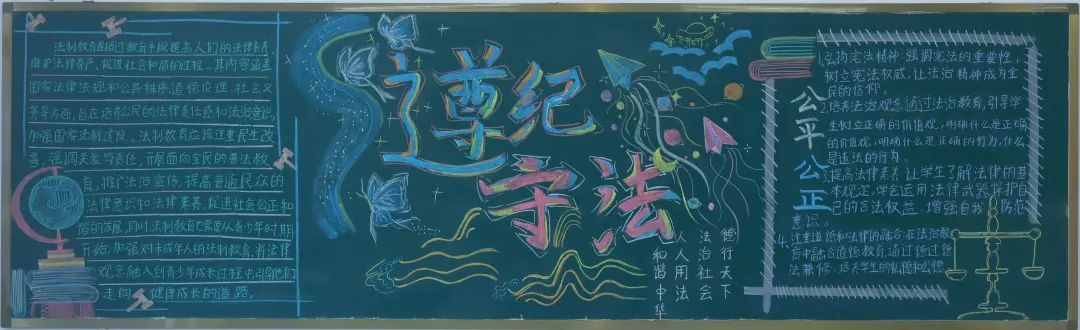 法制教育是通过教育手段提高人们的法律素养、
维护法律尊严、促进社会和谐的过程。其内容涵盖
国家法律法规和公共秩序道德伦理、社会义
务等方面,旨在培养公民的法律责任感和法治意识,
加强国家法制建设。法制教育应该注重民生改
善,强调关爱与责任,开展面向全民的普法教
育,推广法治宣传,提高普通民众的
法律意识和法律素养,促进社会公正和
谐的发展,同时法制教育也需要从青少年时期
开始,加强对未成年人的法制教育,将法律
观念融入到青少年成长过程中,引导他们
走向健康成长的道路。
遵纪
守法
德行天下
法治社会
人人用法
和谐中华
公平公正
1.弘扬宪法精神:强调宪法的重要性,
树立宪法权威,让法治精神成为全
民的信仰。
2.培养法治观念:通过法治教育,引导学
生树立正确的价值观,明确什么是正确
的价值观,明确什么是正确的行为,什么
是违法的行为。
3.提高法律素养:让学生了解法律的基
本规定,学会运用法律武器保护自
己的合法权益,增强自我防范
意识。
4.注重道德和法律的融合:在法治教
育中融合道德教育,通过德过德
法兼修,培养学生的私德和公德